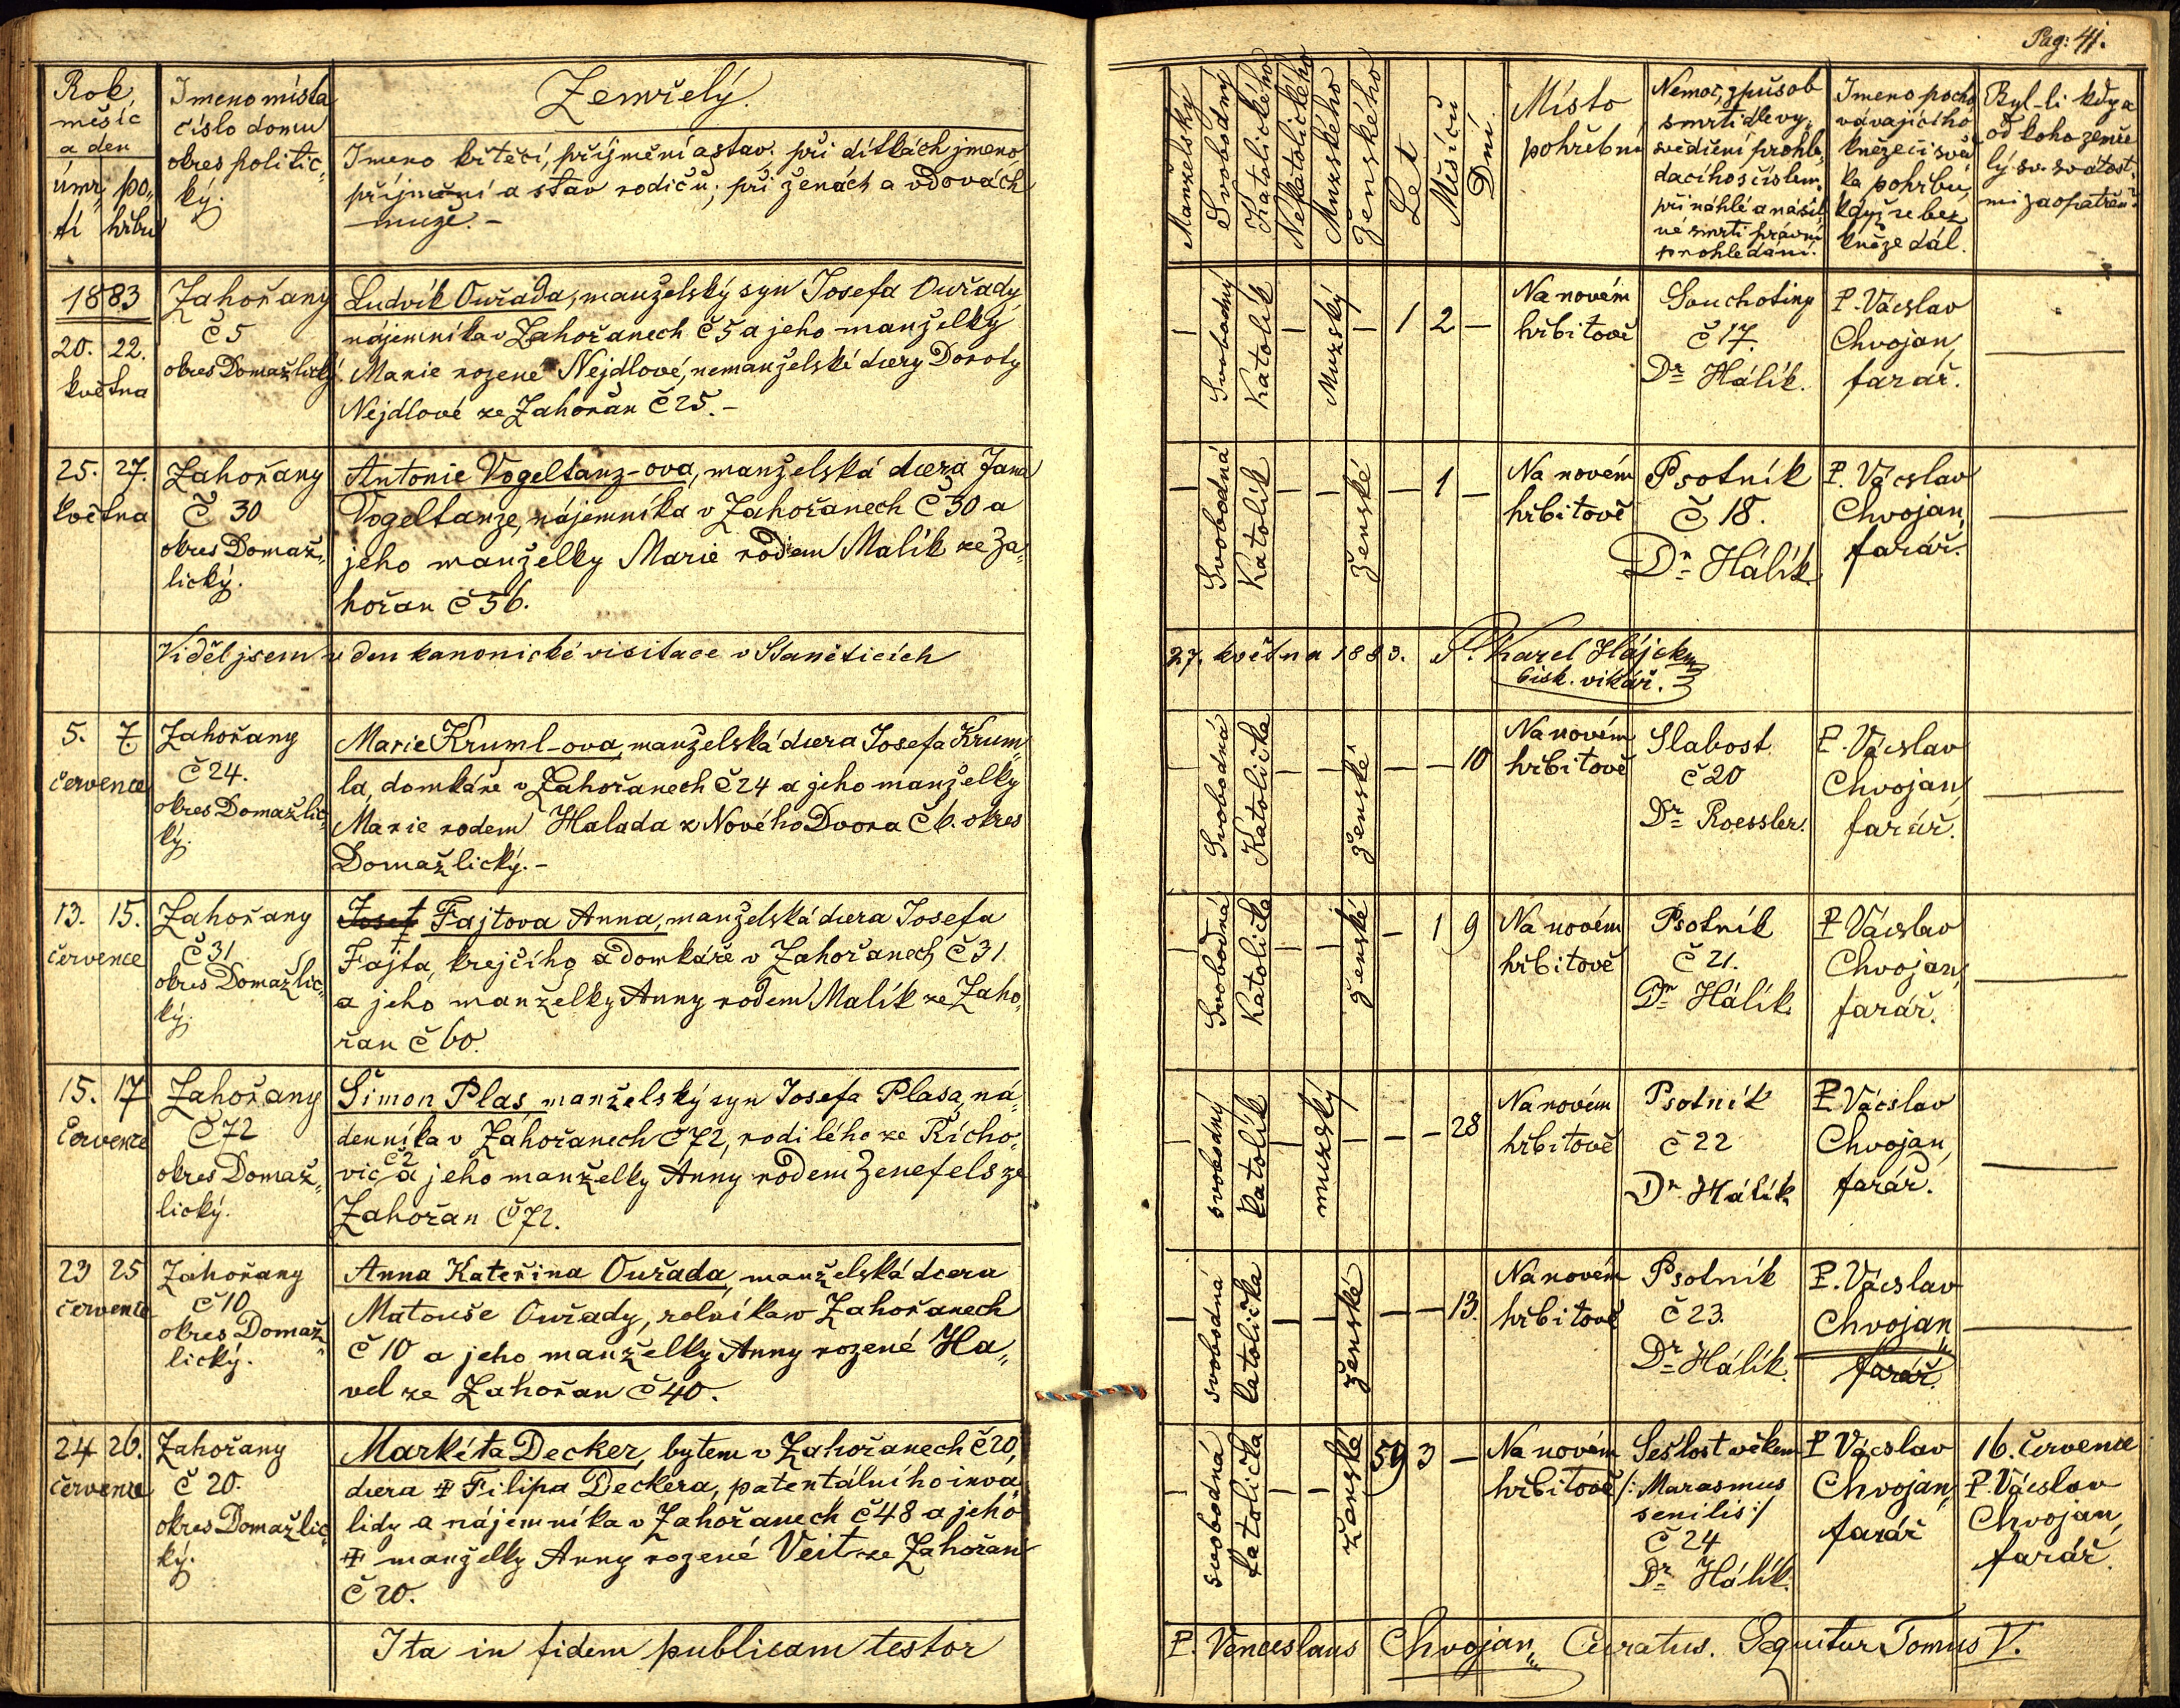 Pag: 41.
Rok, měsíc a den
úmr„ tí
po„ hřbu
Jmeno místa
číslo domu
okres politic„
ký.
Zemřelý.
Jmeno křtěcí, příjmění a stav; při dítkách jmeno,
příjmění a stav rodičů; při ženách a vdovách
muže. –
Manželský
Svobodný
Katolického
Nekatolického
Mužského
Ženského
Let
Měsíců
Dní.
Místo
pohřební
Nemoc, způsob
smrti dle vy„
svědčení prohle„
dacího s číslem.
při náhlé a násil„
né smrti právní
prohledání.
Jmeno pocho
vávajícího
kněze či svě„
ka pohřbu,
když se bez
kněze dál.
Byl-li kdy a
od koho zemře
lý sv. svátost„
mi zaopatřen.
1883
20. 22.
května
Zahořany
č 5
okres Domažlický
Ludvík Ouřada, manželský syn Josefa Ouřady
nájemníka v Zahořanech č 5 a jeho manželky
Marie rozené Nejdlové, nemanželské dcery Doroty
Nejdlové ze Zahořan č 25. –
– Svobodný Katolík – Mužský – 1 2 –
Na novém
hřbitově
Souchotiny
č 17.
Dr Hálík.
P. Vácslav
Chvojan,
farář.
25. 27.
května
Zahořany
č 30
okres Domaž„
lický.
Antonie Vogeltanz-ova, manželská dcera Jana
Vogeltanze, nájemníka v Zahořanech č 30 a
jeho manželky Marie rodem Malík ze Za„
hořan č 56.
– Svobodná Katolík – – ženské – 1 –
Na novém
hřbitově
Psotník
č 18.
Dr Hálík
P. Vácslav
Chvojan,
farář.
Viděl jsem v den kanonické visitace v Staněticích
27. května 1883. P. Karel Hájek
bisk. vikář.
5. 7.
července
Zahořany
č 24.
okres Domažlic„
ký.
Marie Kruml-ova, manželská dcera Josefa Krum„
la, domkáře v Zahořanech č 24 a jeho manželky
Marie rodem Halada z Nového Dvora č 6. okres
Domažlický. –
– Svobodná Katolička – – ženské – – 10
Na novém
hřbitově
Slabost
č 20
Dr Roessler.
P. Vácslav
Chvojan,
farář.
13. 15.
července
Zahořany
č 31
okres Domažlic„
ký.
Josef Fajtova Anna, manželská dcera Josefa
Fajta, krejčího a domkáře v Zahořanech č 31
a jeho manželky Anny rodem Malík ze Zaho„
řan č 60.
– Svobodná Katolička – – ženské – 1 9
Na novém
hřbitově
Psotník
č 21.
Dr Hálík.
P Vácslav
Chvojan,
farář.
15. 17
července
Zahořany
č 72
okres Domaž„
lický.
Šimon Plas, manželský syn Josefa Plasa, ná„
denníka v Zahořanech č 72, rodilého ze Řícho„
vic č 2 a jeho manželky Anny rodem Zenefels ze
Zahořan č 72.
– svobodný katolík – mužský – – – 28
Na novém
hřbitově
Psotník
č 22
Dr Hálík
P. Vácslav
Chvojan,
farář.
23 25
července
Zahořany
č 10
okres Domaž„
lický.
Anna Kateřina Ouřada, manželská dcera
Matouše Ouřady, rolníka v Zahořanech
č 10 a jeho manželky Anny rozené Ha„
vel ze Zahořan č 40.
– svobodná katolička – – ženské – – 13.
Na novém
hřbitově
Psotník
č 23.
Dr Hálík.
P. Vácslav
Chvojan„
farář.
24 26.
července
Zahořany
č 20.
okres Domažlic„
ký.
Markéta Decker, bytem v Zahořanech č 20,
dcera ‡ Filipa Deckera, patentálního inva„
lidy a nájemníka v Zahořanech č 48 a jeho
‡ manželky Anny rozené Veit ze Zahořan
č 20.
– svobodná katolička – – ženská 59 3 –
Na novém
hřbitově
Sešlost věkem
/: Marasmus
senilis :/
č 24
Dr Hálík.
P Vácslav
Chvojan„
farář
16. července
P. Vácslav
Chvojan,
farář.
Ita in fidem publicam testor
P. Venceslaus Chvojan„ Curatus. Sequitur Tomus V.